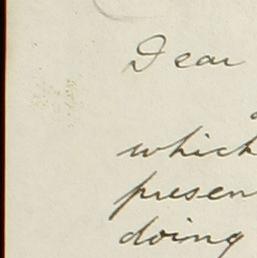 Dear
which
presen
doing